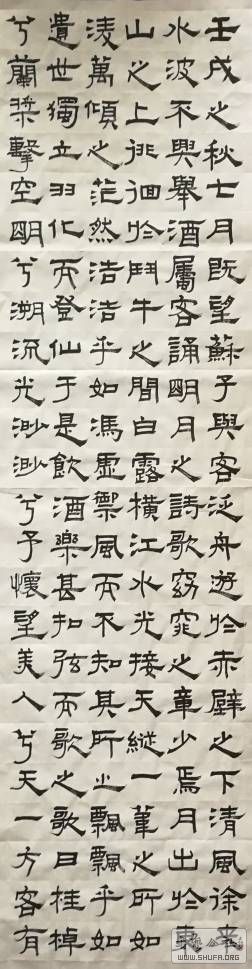 壬戌之秋七月既望蘇子與客泛舟游於赤壁之下清風徐来
水波不興舉酒屬客誦明月之詩歌窈窕之章少焉月出於東
山之上徘徊於鬥牛之間白露橫江水光接天縱一葦之所如
淩萬頃之茫然浩浩乎如馮虛禦風而不知其所止飄飄乎如
遺世獨立羽化而登仙于是飲酒樂甚扣弦而歌之歌曰桂棹
兮蘭槳擊空明兮溯流光渺渺兮予懷望美人兮天一方客有
WWW.SHUFA.ORG